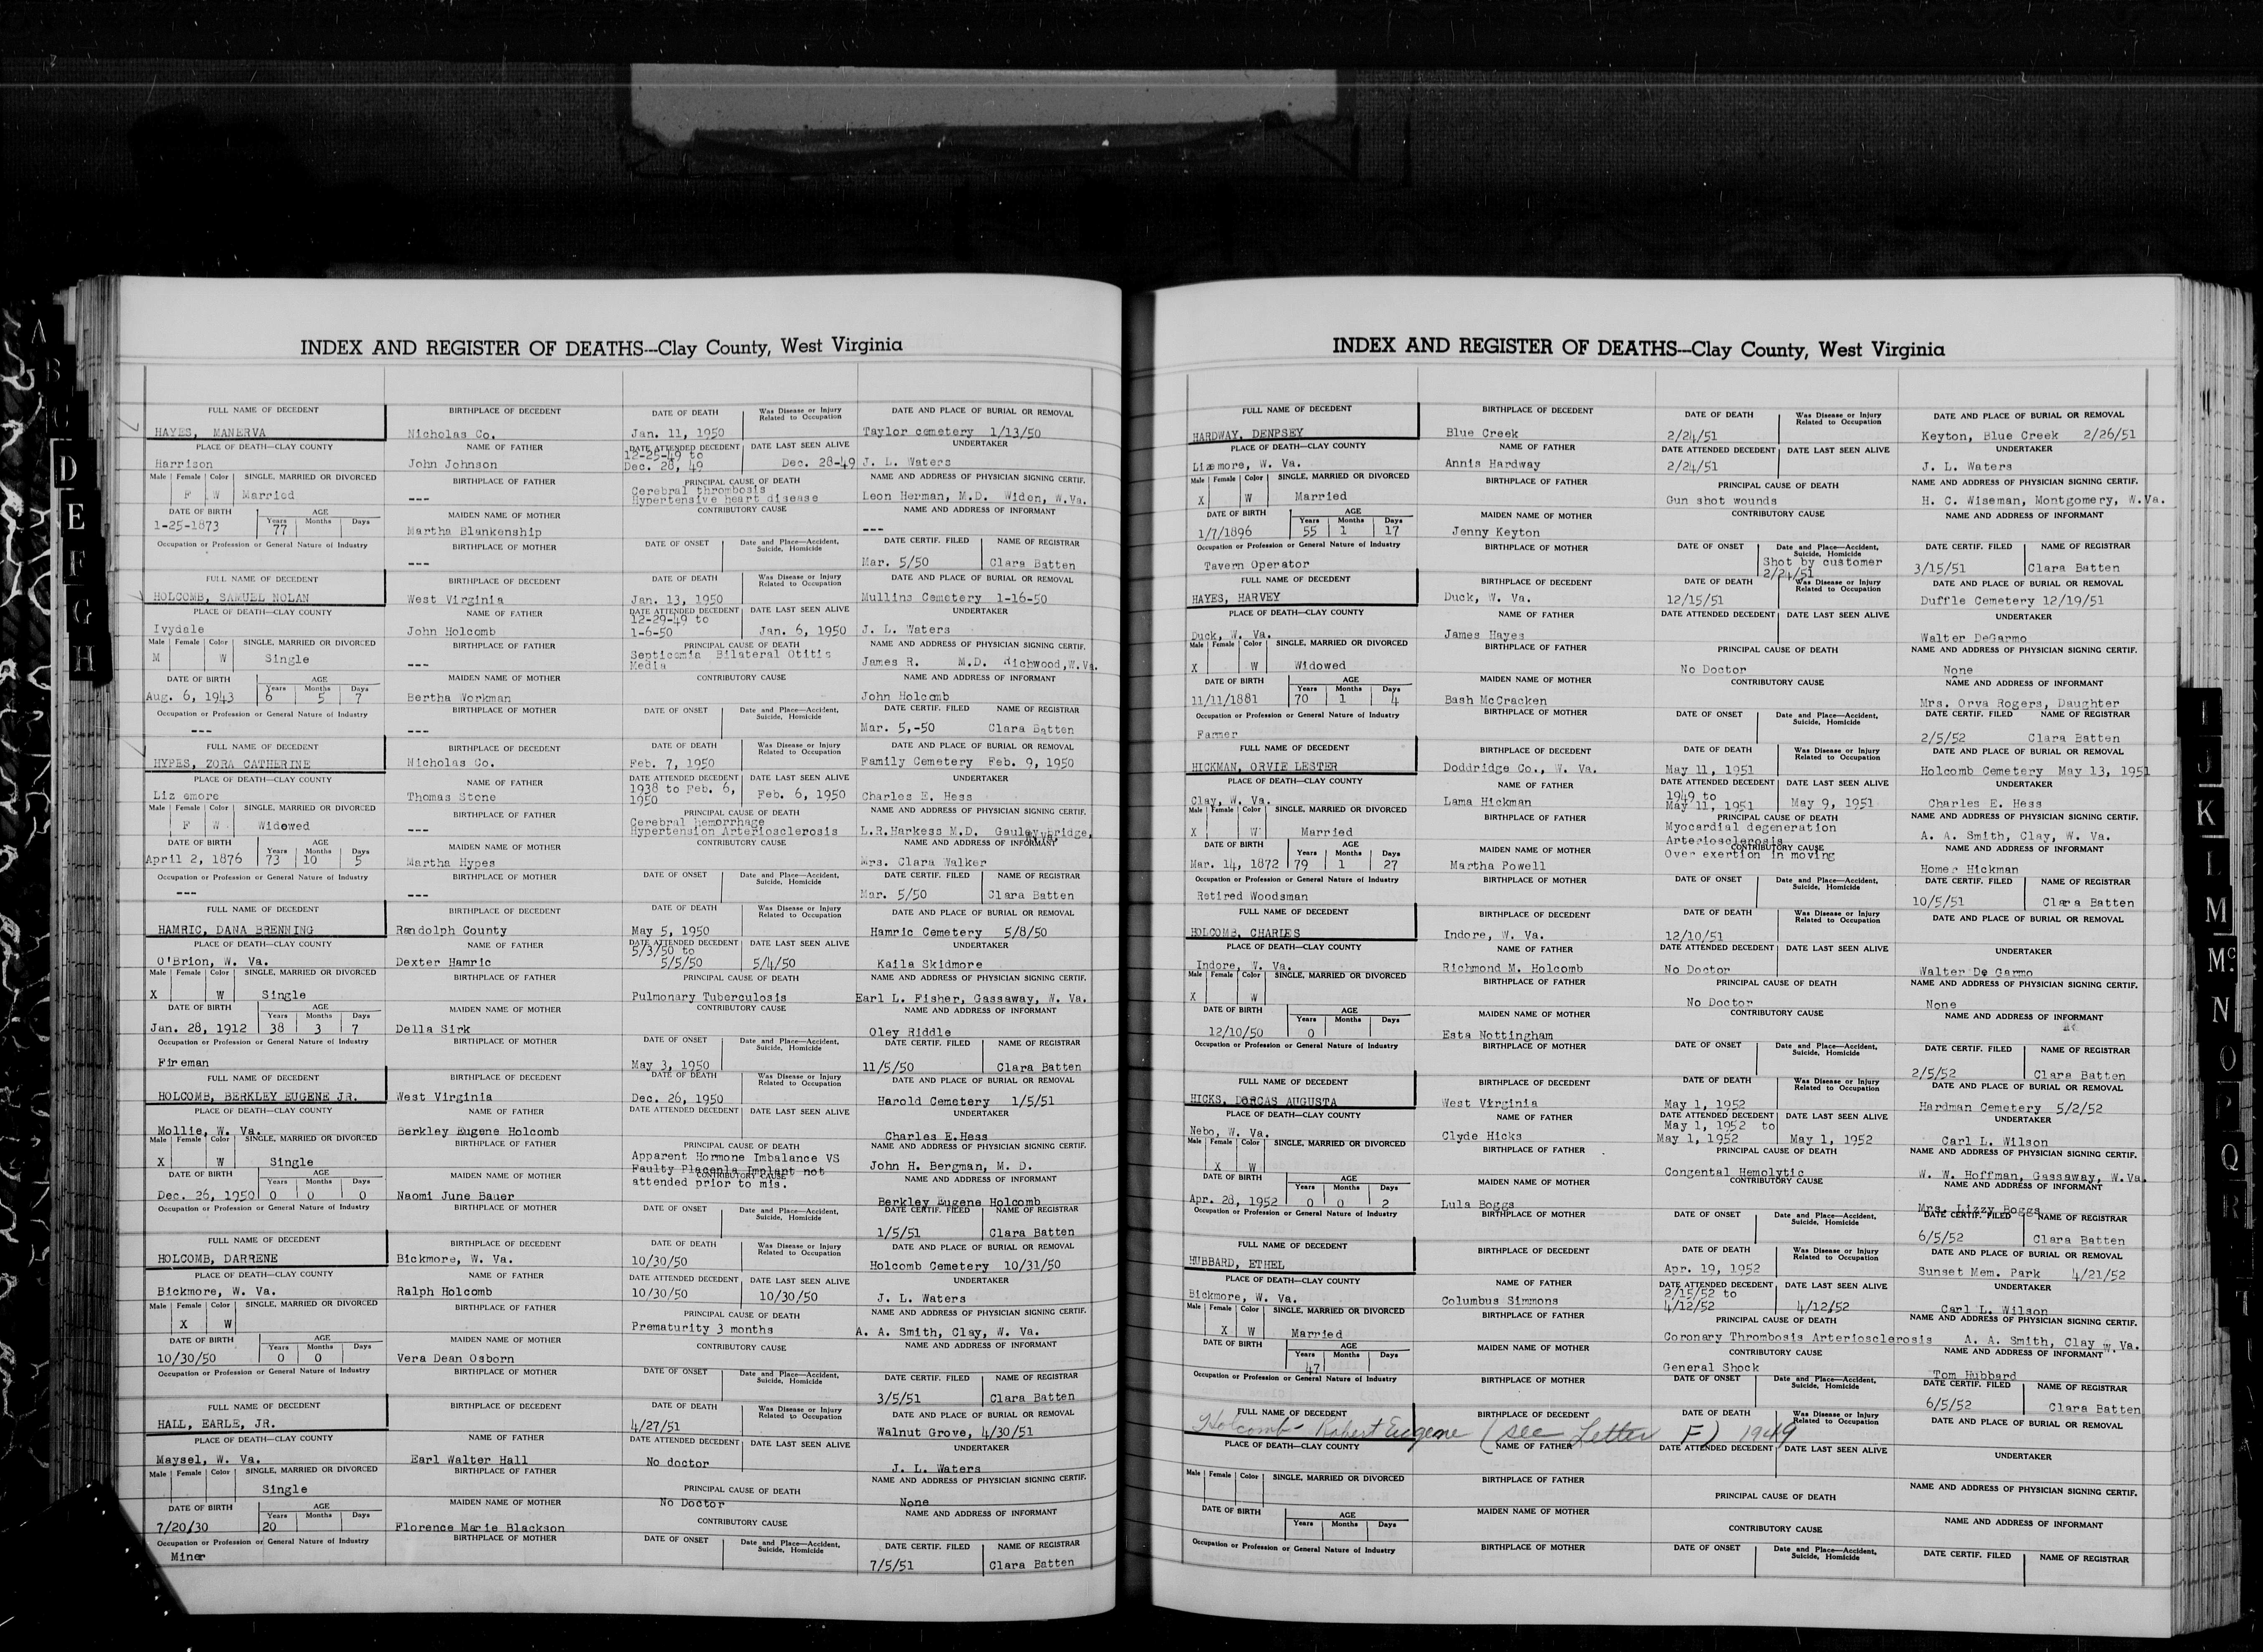 INDEX AND REGISTER OF DEATHS---Clay County, West Virginia
FULL NAME OF DECEDENT BIRTHPLACE OF DECEDENT DATE OF DEATH Was Disease or Injury Related to Occupation DATE AND PLACE OF BURIAL OR REMOVAL
HAYES, MANERVA Nicholas Co. Jan. 11, 1950 Taylor cemetery 1/13/50
PLACE OF DEATH—CLAY COUNTY NAME OF FATHER DATE ATTENDED DECEDENT DATE LAST SEEN ALIVE UNDERTAKER
Harrison John Johnson 12-25-49 to Dec. 28, 49 Dec. 28-49 J. L. Waters
Male Female Color SINGLE, MARRIED OR DIVORCED BIRTHPLACE OF FATHER PRINCIPAL CAUSE OF DEATH NAME AND ADDRESS OF PHYSICIAN SIGNING CERTIF.
F W Married --- Cerebral thrombosis Hypertensive heart disease Leon Herman, M.D. Widen, W.Va.
DATE OF BIRTH AGE Years Months Days MAIDEN NAME OF MOTHER CONTRIBUTORY CAUSE NAME AND ADDRESS OF INFORMANT
1-25-1873 77 Martha Blankenship ---
Occupation or Profession or General Nature of Industry BIRTHPLACE OF MOTHER DATE OF ONSET Date and Place—Accident, Suicide, Homicide DATE CERTIF. FILED NAME OF REGISTRAR
--- Mar. 5/50 Clara Batten
FULL NAME OF DECEDENT BIRTHPLACE OF DECEDENT DATE OF DEATH Was Disease or Injury Related to Occupation DATE AND PLACE OF BURIAL OR REMOVAL
HOLCOMB, SAMUEL NOLAN West Virginia Jan. 13, 1950 Mullins Cemetery 1-16-50
PLACE OF DEATH—CLAY COUNTY NAME OF FATHER DATE ATTENDED DECEDENT DATE LAST SEEN ALIVE UNDERTAKER
Ivydale John Holcomb 12-29-49 to 1-6-50 Jan. 6, 1950 J. L. Waters
Male Female Color SINGLE, MARRIED OR DIVORCED BIRTHPLACE OF FATHER PRINCIPAL CAUSE OF DEATH NAME AND ADDRESS OF PHYSICIAN SIGNING CERTIF.
M W Single --- Septicomia Bilateral Otitis Media James R. M.D. Richwood,W.Va.
DATE OF BIRTH AGE Years Months Days MAIDEN NAME OF MOTHER CONTRIBUTORY CAUSE NAME AND ADDRESS OF INFORMANT
Aug. 6, 1943 6 5 7 Bertha Workman John Holcomb
Occupation or Profession or General Nature of Industry BIRTHPLACE OF MOTHER DATE OF ONSET Date and Place—Accident, Suicide, Homicide DATE CERTIF. FILED NAME OF REGISTRAR
--- --- Mar. 5,-50 Clara Batten
FULL NAME OF DECEDENT BIRTHPLACE OF DECEDENT DATE OF DEATH Was Disease or Injury Related to Occupation DATE AND PLACE OF BURIAL OR REMOVAL
HYPES, ZORA CATHERINE Nicholas Co. Feb. 7, 1950 Family Cemetery Feb. 9, 1950
PLACE OF DEATH—CLAY COUNTY NAME OF FATHER DATE ATTENDED DECEDENT DATE LAST SEEN ALIVE UNDERTAKER
Liz emore Thomas Stone 1938 to Feb. 6, 1950 Feb. 6, 1950 Charles E. Hess
Male Female Color SINGLE, MARRIED OR DIVORCED BIRTHPLACE OF FATHER PRINCIPAL CAUSE OF DEATH NAME AND ADDRESS OF PHYSICIAN SIGNING CERTIF.
F W Widowed --- Cerebral hemorrhage Hypertension Arteriosclerosis L.R.Harkess M.D. Gauley Bridge, W.Va.
DATE OF BIRTH AGE Years Months Days MAIDEN NAME OF MOTHER CONTRIBUTORY CAUSE NAME AND ADDRESS OF INFORMANT
April 2, 1876 73 10 5 Martha Hypes Mrs. Clara Walker
Occupation or Profession or General Nature of Industry BIRTHPLACE OF MOTHER DATE OF ONSET Date and Place—Accident, Suicide, Homicide DATE CERTIF. FILED NAME OF REGISTRAR
--- --- Mar. 5/50 Clara Batten
FULL NAME OF DECEDENT BIRTHPLACE OF DECEDENT DATE OF DEATH Was Disease or Injury Related to Occupation DATE AND PLACE OF BURIAL OR REMOVAL
HAMRIC, DANA BRENNING Randolph County May 5, 1950 Hamric Cemetery 5/8/50
PLACE OF DEATH—CLAY COUNTY NAME OF FATHER DATE ATTENDED DECEDENT DATE LAST SEEN ALIVE UNDERTAKER
O'Brion, W. Va. Dexter Hamric 5/3/50 to 5/5/50 5/4/50 Kaila Skidmore
Male Female Color SINGLE, MARRIED OR DIVORCED BIRTHPLACE OF FATHER PRINCIPAL CAUSE OF DEATH NAME AND ADDRESS OF PHYSICIAN SIGNING CERTIF.
X W Single Pulmonary Tuberculosis Earl L. Fisher, Gassaway, W. Va.
DATE OF BIRTH AGE Years Months Days MAIDEN NAME OF MOTHER CONTRIBUTORY CAUSE NAME AND ADDRESS OF INFORMANT
Jan. 28, 1912 38 3 7 Della Sirk Oley Riddle
Occupation or Profession or General Nature of Industry BIRTHPLACE OF MOTHER DATE OF ONSET Date and Place—Accident, Suicide, Homicide DATE CERTIF. FILED NAME OF REGISTRAR
Fireman May 3, 1950 11/5/50 Clara Batten
FULL NAME OF DECEDENT BIRTHPLACE OF DECEDENT DATE OF DEATH Was Disease or Injury Related to Occupation DATE AND PLACE OF BURIAL OR REMOVAL
HOLCOMB, BERKLEY EUGENE JR. West Virginia Dec. 26, 1950 Harold Cemetery 1/5/51
PLACE OF DEATH—CLAY COUNTY NAME OF FATHER DATE ATTENDED DECEDENT DATE LAST SEEN ALIVE UNDERTAKER
Mollie, W. Va. Berkley Eugene Holcomb Charles E.Hess
Male Female Color SINGLE, MARRIED OR DIVORCED BIRTHPLACE OF FATHER PRINCIPAL CAUSE OF DEATH NAME AND ADDRESS OF PHYSICIAN SIGNING CERTIF.
X W Single Apparent Hormone Imbalance VS Faulty Placenla Implant not attended prior to mis. John H. Bergman, M. D.
DATE OF BIRTH AGE Years Months Days MAIDEN NAME OF MOTHER CONTRIBUTORY CAUSE NAME AND ADDRESS OF INFORMANT
Dec. 26, 1950 0 0 0 Naomi June Bauer Berkley Eugene Holcomb
Occupation or Profession or General Nature of Industry BIRTHPLACE OF MOTHER DATE OF ONSET Date and Place—Accident, Suicide, Homicide DATE CERTIF. FILED NAME OF REGISTRAR
1/5/51 Clara Batten
FULL NAME OF DECEDENT BIRTHPLACE OF DECEDENT DATE OF DEATH Was Disease or Injury Related to Occupation DATE AND PLACE OF BURIAL OR REMOVAL
HOLCOMB, DARRENE Bickmore, W. Va. 10/30/50 Holcomb Cemetery 10/31/50
PLACE OF DEATH—CLAY COUNTY NAME OF FATHER DATE ATTENDED DECEDENT DATE LAST SEEN ALIVE UNDERTAKER
Bickmore, W. Va. Ralph Holcomb 10/30/50 10/30/50 J. L. Waters
Male Female Color SINGLE, MARRIED OR DIVORCED BIRTHPLACE OF FATHER PRINCIPAL CAUSE OF DEATH NAME AND ADDRESS OF PHYSICIAN SIGNING CERTIF.
X W Prematurity 3 months A. A. Smith, Clay, W. Va.
DATE OF BIRTH AGE Years Months Days MAIDEN NAME OF MOTHER CONTRIBUTORY CAUSE NAME AND ADDRESS OF INFORMANT
10/30/50 0 0 Vera Dean Osborn
Occupation or Profession or General Nature of Industry BIRTHPLACE OF MOTHER DATE OF ONSET Date and Place—Accident, Suicide, Homicide DATE CERTIF. FILED NAME OF REGISTRAR
3/5/51 Clara Batten
FULL NAME OF DECEDENT BIRTHPLACE OF DECEDENT DATE OF DEATH Was Disease or Injury Related to Occupation DATE AND PLACE OF BURIAL OR REMOVAL
HALL, EARLE, JR. 4/27/51 Walnut Grove, 4/30/51
PLACE OF DEATH—CLAY COUNTY NAME OF FATHER DATE ATTENDED DECEDENT DATE LAST SEEN ALIVE UNDERTAKER
Maysel, W. Va. Earl Walter Hall No doctor J. L. Waters
Male Female Color SINGLE, MARRIED OR DIVORCED BIRTHPLACE OF FATHER PRINCIPAL CAUSE OF DEATH NAME AND ADDRESS OF PHYSICIAN SIGNING CERTIF.
Single No Doctor None
DATE OF BIRTH AGE Years Months Days MAIDEN NAME OF MOTHER CONTRIBUTORY CAUSE NAME AND ADDRESS OF INFORMANT
7/20/30 20 Florence Marie Blackson
Occupation or Profession or General Nature of Industry BIRTHPLACE OF MOTHER DATE OF ONSET Date and Place—Accident, Suicide, Homicide DATE CERTIF. FILED NAME OF REGISTRAR
Miner 7/5/51 Clara Batten
D
E
F
G
H
INDEX AND REGISTER OF DEATHS---Clay County, West Virginia
FULL NAME OF DECEDENT BIRTHPLACE OF DECEDENT DATE OF DEATH Was Disease or Injury Related to Occupation DATE AND PLACE OF BURIAL OR REMOVAL
HARDWAY, DENPSEY Blue Creek 2/24/51 Keyton, Blue Creek 2/26/51
PLACE OF DEATH—CLAY COUNTY NAME OF FATHER DATE ATTENDED DECEDENT DATE LAST SEEN ALIVE UNDERTAKER
Lizemore, W. Va. Annis Hardway 2/24/51 J. L. Waters
Male Female Color SINGLE, MARRIED OR DIVORCED BIRTHPLACE OF FATHER PRINCIPAL CAUSE OF DEATH NAME AND ADDRESS OF PHYSICIAN SIGNING CERTIF.
X W Married Gun shot wounds H. C. Wiseman, Montgomery, W.Va.
DATE OF BIRTH AGE Years Months Days MAIDEN NAME OF MOTHER CONTRIBUTORY CAUSE NAME AND ADDRESS OF INFORMANT
1/7/1896 55 1 17 Jenny Keyton
Occupation or Profession or General Nature of Industry BIRTHPLACE OF MOTHER DATE OF ONSET Date and Place—Accident, Suicide, Homicide DATE CERTIF. FILED NAME OF REGISTRAR
Tavern Operator Shot by customer 2/24/51 3/15/51 Clara Batten
FULL NAME OF DECEDENT BIRTHPLACE OF DECEDENT DATE OF DEATH Was Disease or Injury Related to Occupation DATE AND PLACE OF BURIAL OR REMOVAL
HAYES, HARVEY Duck, W. Va. 12/15/51 Duffle Cemetery 12/19/51
PLACE OF DEATH—CLAY COUNTY NAME OF FATHER DATE ATTENDED DECEDENT DATE LAST SEEN ALIVE UNDERTAKER
Duck, W. Va. James Hayes Walter DeGarmo
Male Female Color SINGLE, MARRIED OR DIVORCED BIRTHPLACE OF FATHER PRINCIPAL CAUSE OF DEATH NAME AND ADDRESS OF PHYSICIAN SIGNING CERTIF.
X W Widowed No Doctor None
DATE OF BIRTH AGE Years Months Days MAIDEN NAME OF MOTHER CONTRIBUTORY CAUSE NAME AND ADDRESS OF INFORMANT
11/11/1881 70 1 4 Bash McCracken Mrs. Orva Rogers, Daughter
Occupation or Profession or General Nature of Industry BIRTHPLACE OF MOTHER DATE OF ONSET Date and Place—Accident, Suicide, Homicide DATE CERTIF. FILED NAME OF REGISTRAR
Farmer 2/5/52 Clara Batten
FULL NAME OF DECEDENT BIRTHPLACE OF DECEDENT DATE OF DEATH Was Disease or Injury Related to Occupation DATE AND PLACE OF BURIAL OR REMOVAL
HICKMAN, ORVIE LESTER Doddridge Co., W. Va. May 11, 1951 Holcomb Cemetery May 13, 1951
PLACE OF DEATH—CLAY COUNTY NAME OF FATHER DATE ATTENDED DECEDENT DATE LAST SEEN ALIVE UNDERTAKER
Clay, W. Va. Lama Hickman 1949 to May 11, 1951 May 9, 1951 Charles E. Hess
Male Female Color SINGLE, MARRIED OR DIVORCED BIRTHPLACE OF FATHER PRINCIPAL CAUSE OF DEATH NAME AND ADDRESS OF PHYSICIAN SIGNING CERTIF.
X W Married Myocardial degeneration Arteriosclerosis A. A. Smith, Clay, W. Va.
DATE OF BIRTH AGE Years Months Days MAIDEN NAME OF MOTHER CONTRIBUTORY CAUSE NAME AND ADDRESS OF INFORMANT
Mar. 14, 1872 79 1 27 Martha Powell Over exertion in moving Homer Hickman
Occupation or Profession or General Nature of Industry BIRTHPLACE OF MOTHER DATE OF ONSET Date and Place—Accident, Suicide, Homicide DATE CERTIF. FILED NAME OF REGISTRAR
Retired Woodsman 10/5/51 Clara Batten
FULL NAME OF DECEDENT BIRTHPLACE OF DECEDENT DATE OF DEATH Was Disease or Injury Related to Occupation DATE AND PLACE OF BURIAL OR REMOVAL
HOLCOMB, CHARLES Indore, W. Va. 12/10/51
PLACE OF DEATH—CLAY COUNTY NAME OF FATHER DATE ATTENDED DECEDENT DATE LAST SEEN ALIVE UNDERTAKER
Indore, W. Va. Richmond M. Holcomb No Doctor Walter De Garmo
Male Female Color SINGLE, MARRIED OR DIVORCED BIRTHPLACE OF FATHER PRINCIPAL CAUSE OF DEATH NAME AND ADDRESS OF PHYSICIAN SIGNING CERTIF.
X W No Doctor None
DATE OF BIRTH AGE Years Months Days MAIDEN NAME OF MOTHER CONTRIBUTORY CAUSE NAME AND ADDRESS OF INFORMANT
12/10/50 0 Esta Nottingham
Occupation or Profession or General Nature of Industry BIRTHPLACE OF MOTHER DATE OF ONSET Date and Place—Accident, Suicide, Homicide DATE CERTIF. FILED NAME OF REGISTRAR
2/5/52 Clara Batten
FULL NAME OF DECEDENT BIRTHPLACE OF DECEDENT DATE OF DEATH Was Disease or Injury Related to Occupation DATE AND PLACE OF BURIAL OR REMOVAL
HICKS, DORCAS AUGUSTA West Virginia May 1, 1952 Hardman Cemetery 5/2/52
PLACE OF DEATH—CLAY COUNTY NAME OF FATHER DATE ATTENDED DECEDENT DATE LAST SEEN ALIVE UNDERTAKER
Nebo, W. Va. Clyde Hicks May 1, 1952 to May 1, 1952 May 1, 1952 Carl L. Wilson
Male Female Color SINGLE, MARRIED OR DIVORCED BIRTHPLACE OF FATHER PRINCIPAL CAUSE OF DEATH NAME AND ADDRESS OF PHYSICIAN SIGNING CERTIF.
X W Congental Hemolytic W. W. Hoffman, Gassaway, W.Va.
DATE OF BIRTH AGE Years Months Days MAIDEN NAME OF MOTHER CONTRIBUTORY CAUSE NAME AND ADDRESS OF INFORMANT
Apr. 28, 1952 0 0 2 Lula Boggs Mrs. Lizzy Boggs
Occupation or Profession or General Nature of Industry BIRTHPLACE OF MOTHER DATE OF ONSET Date and Place—Accident, Suicide, Homicide DATE CERTIF. FILED NAME OF REGISTRAR
6/5/52 Clara Batten
FULL NAME OF DECEDENT BIRTHPLACE OF DECEDENT DATE OF DEATH Was Disease or Injury Related to Occupation DATE AND PLACE OF BURIAL OR REMOVAL
HUBBARD, ETHEL Apr. 19, 1952 Sunset Mem. Park 4/21/52
PLACE OF DEATH—CLAY COUNTY NAME OF FATHER DATE ATTENDED DECEDENT DATE LAST SEEN ALIVE UNDERTAKER
Bickmore, W. Va. Columbus Simmons 2/15/52 to 4/12/52 4/12/52 Carl L. Wilson
Male Female Color SINGLE, MARRIED OR DIVORCED BIRTHPLACE OF FATHER PRINCIPAL CAUSE OF DEATH NAME AND ADDRESS OF PHYSICIAN SIGNING CERTIF.
X W Married Coronary Thrombosis Arteriosclerosis A. A. Smith, Clay W. Va.
DATE OF BIRTH AGE Years Months Days MAIDEN NAME OF MOTHER CONTRIBUTORY CAUSE NAME AND ADDRESS OF INFORMANT
47 General Shock Tom Hubbard
Occupation or Profession or General Nature of Industry BIRTHPLACE OF MOTHER DATE OF ONSET Date and Place—Accident, Suicide, Homicide DATE CERTIF. FILED NAME OF REGISTRAR
6/5/52 Clara Batten
FULL NAME OF DECEDENT BIRTHPLACE OF DECEDENT DATE OF DEATH Was Disease or Injury Related to Occupation DATE AND PLACE OF BURIAL OR REMOVAL
Holcomb - Robert Eugene (see Letter F) 1949
PLACE OF DEATH—CLAY COUNTY NAME OF FATHER DATE ATTENDED DECEDENT DATE LAST SEEN ALIVE UNDERTAKER
Male Female Color SINGLE, MARRIED OR DIVORCED BIRTHPLACE OF FATHER PRINCIPAL CAUSE OF DEATH NAME AND ADDRESS OF PHYSICIAN SIGNING CERTIF.
DATE OF BIRTH AGE Years Months Days MAIDEN NAME OF MOTHER CONTRIBUTORY CAUSE NAME AND ADDRESS OF INFORMANT
Occupation or Profession or General Nature of Industry BIRTHPLACE OF MOTHER DATE OF ONSET Date and Place—Accident, Suicide, Homicide DATE CERTIF. FILED NAME OF REGISTRAR
I
J
K
L
M
Mc
N
O
P
Q
R